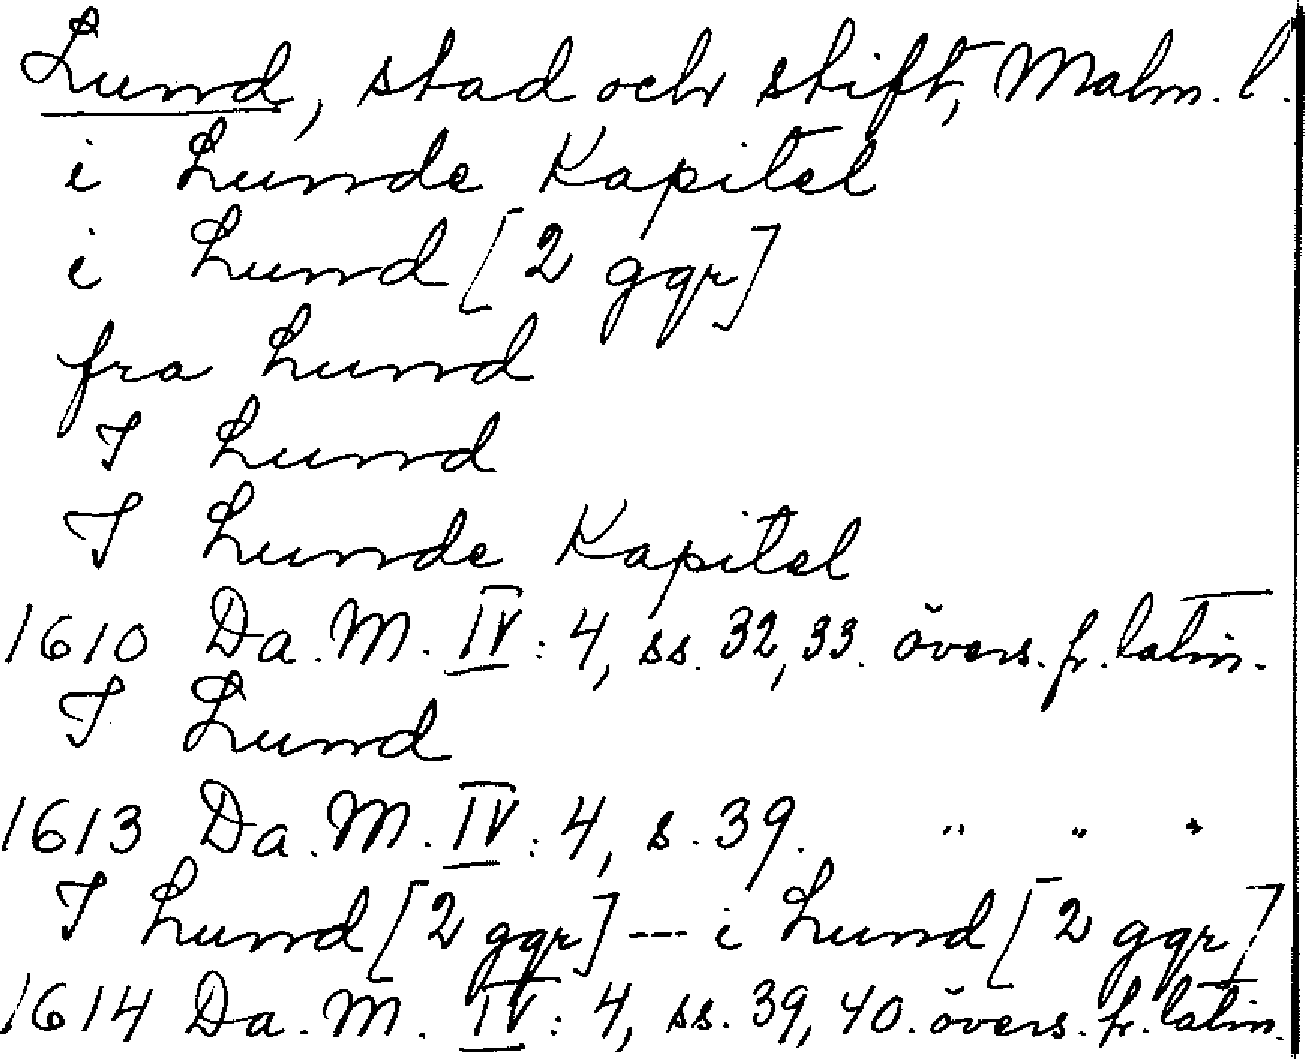 Lund, stad och stift, Malm. l.
i Lunde Kapitel
i Lund [2 ggr]
fra Lund
I Lund
I Lunde Kapitel
1610 Da. M. IV: 4, ss. 32, 33. övers. fr. latin.
I Lund
1613 Da. M. IV: 4, s. 39. " " "
I Lund [2 ggr] --- i Lund [2 ggr]
1614 Da. M. IV: 4, ss. 39, 40. övers. fr. latin.